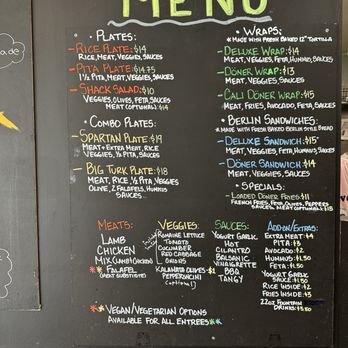 MENU
• PLATES:
- RICE PLATE: $14
RICE, MEAT, VEGGIES, SAUCES
- PITA PLATE: $14.75
1½ PITA, MEAT, VEGGIES, SAUCES
- SHACK SALAD: $10
VEGGIES, OLIVES, FETA, SAUCES
MEAT (OPTIONAL) $4
• COMBO PLATES:
- SPARTAN PLATE: $19
MEAT + EXTRA MEAT, RICE
VEGGIES, ½ PITA, SAUCES
- BIG TURK PLATE: $18
MEAT, RICE, ½ PITA, VEGGIES
OLIVE, 2 FALAFELS, HUMMUS
SAUCES
• WRAPS:
* MADE WITH FRESH BAKED 12" TORTILLA
- DELUXE WRAP: $14
MEAT, VEGGIES, FETA, HUMMUS, SAUCES
- DÖNER WRAP: $13
MEAT, VEGGIES, SAUCES
- CALI DÖNER WRAP: $15
MEAT, FRIES, AVOCADO, FETA, SAUCES
• BERLIN SANDWICHES:
* MADE WITH FRESH BAKED BERLIN STYLE BREAD
- DELUXE SANDWICH: $15
MEAT, VEGGIES, FETA, HUMMUS, SAUCES
- DÖNER SANDWICH: $14
MEAT, VEGGIES, SAUCES
• SPECIALS:
- LOADED DÖNER FRIES: $11
FRENCH FRIES, FETA, OLIVES, PEPPERS
SAUCES, MEAT (OPTIONAL) $4
MEATS:
LAMB
CHICKEN
MIX (LAMB + CHICKEN)
FALAFEL
(MEAT SUBSTITUTE)
VEGGIES:
ROMAINE LETTUCE
TOMATO
CUCUMBER
RED CABBAGE
ONIONS
KALAMATA OLIVES $1
PEPERONCINI
(OPTIONAL)
SAUCES:
YOGURT GARLIC
HOT
CILANTRO
BALSAMIC
VINAIGRETTE
BBQ
TANGY
ADD-ON/EXTRAS:
EXTRA MEAT $4
PITA $3
AVOCADO $2
HUMMUS: $1.50
FETA $1.50
YOGURT GARLIC
SAUCE
RICE INSIDE $2
FRIES INSIDE $3
22OZ FOUNTAIN
DRINKS: $3.50
* VEGAN/VEGETARIAN OPTIONS
AVAILABLE FOR ALL ENTREES